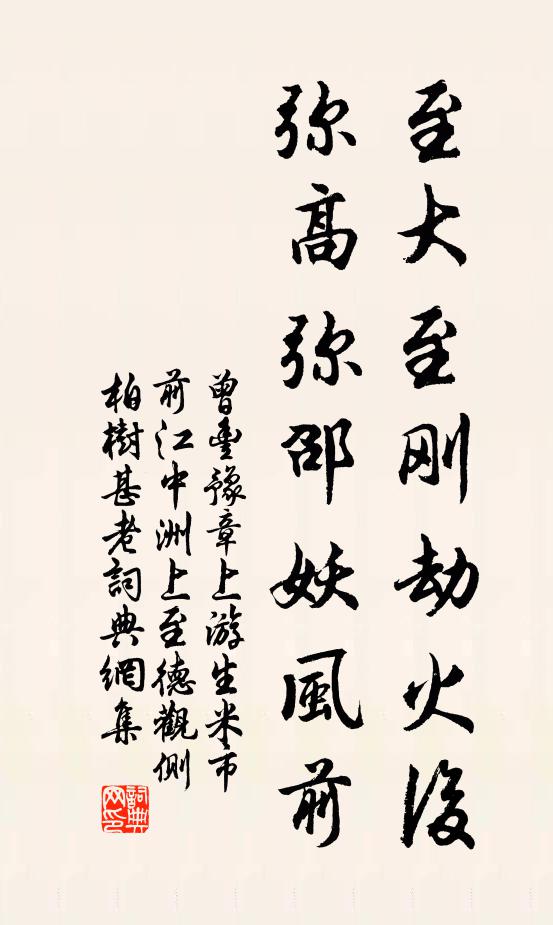 至大至刚劫火後
弥高弥邵妖風前
曾豊豫章上游生米市
前江中洲上至德觀側
柏樹甚老詞典網集
詞典网印